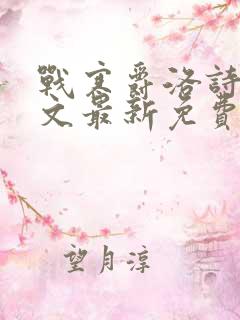 戰寒爵洛詩
文最新免費
望月淳